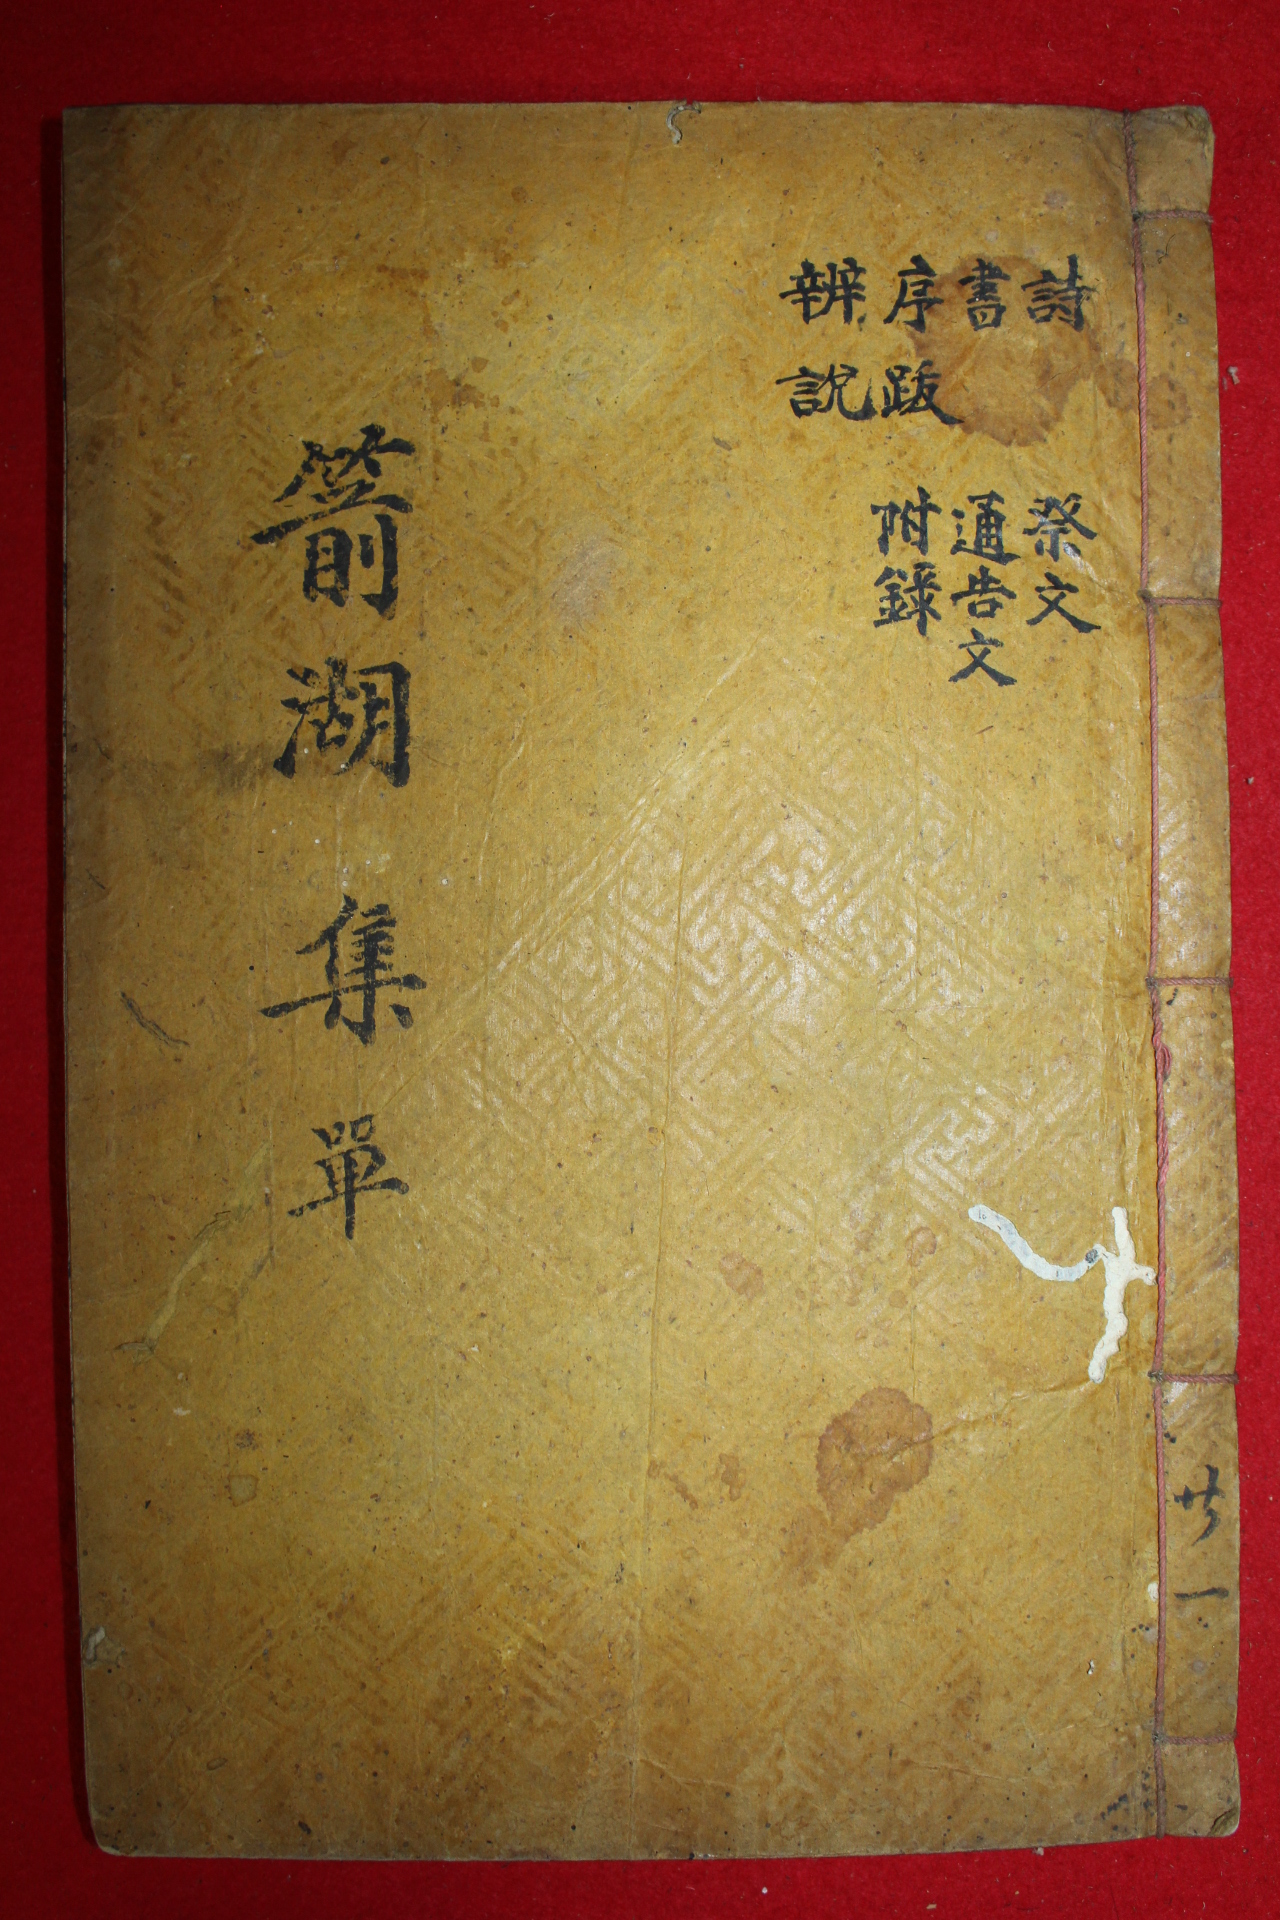 詩
書
序跋
辨說
祭文
通告文
附錄
箭湖集 單
卄一